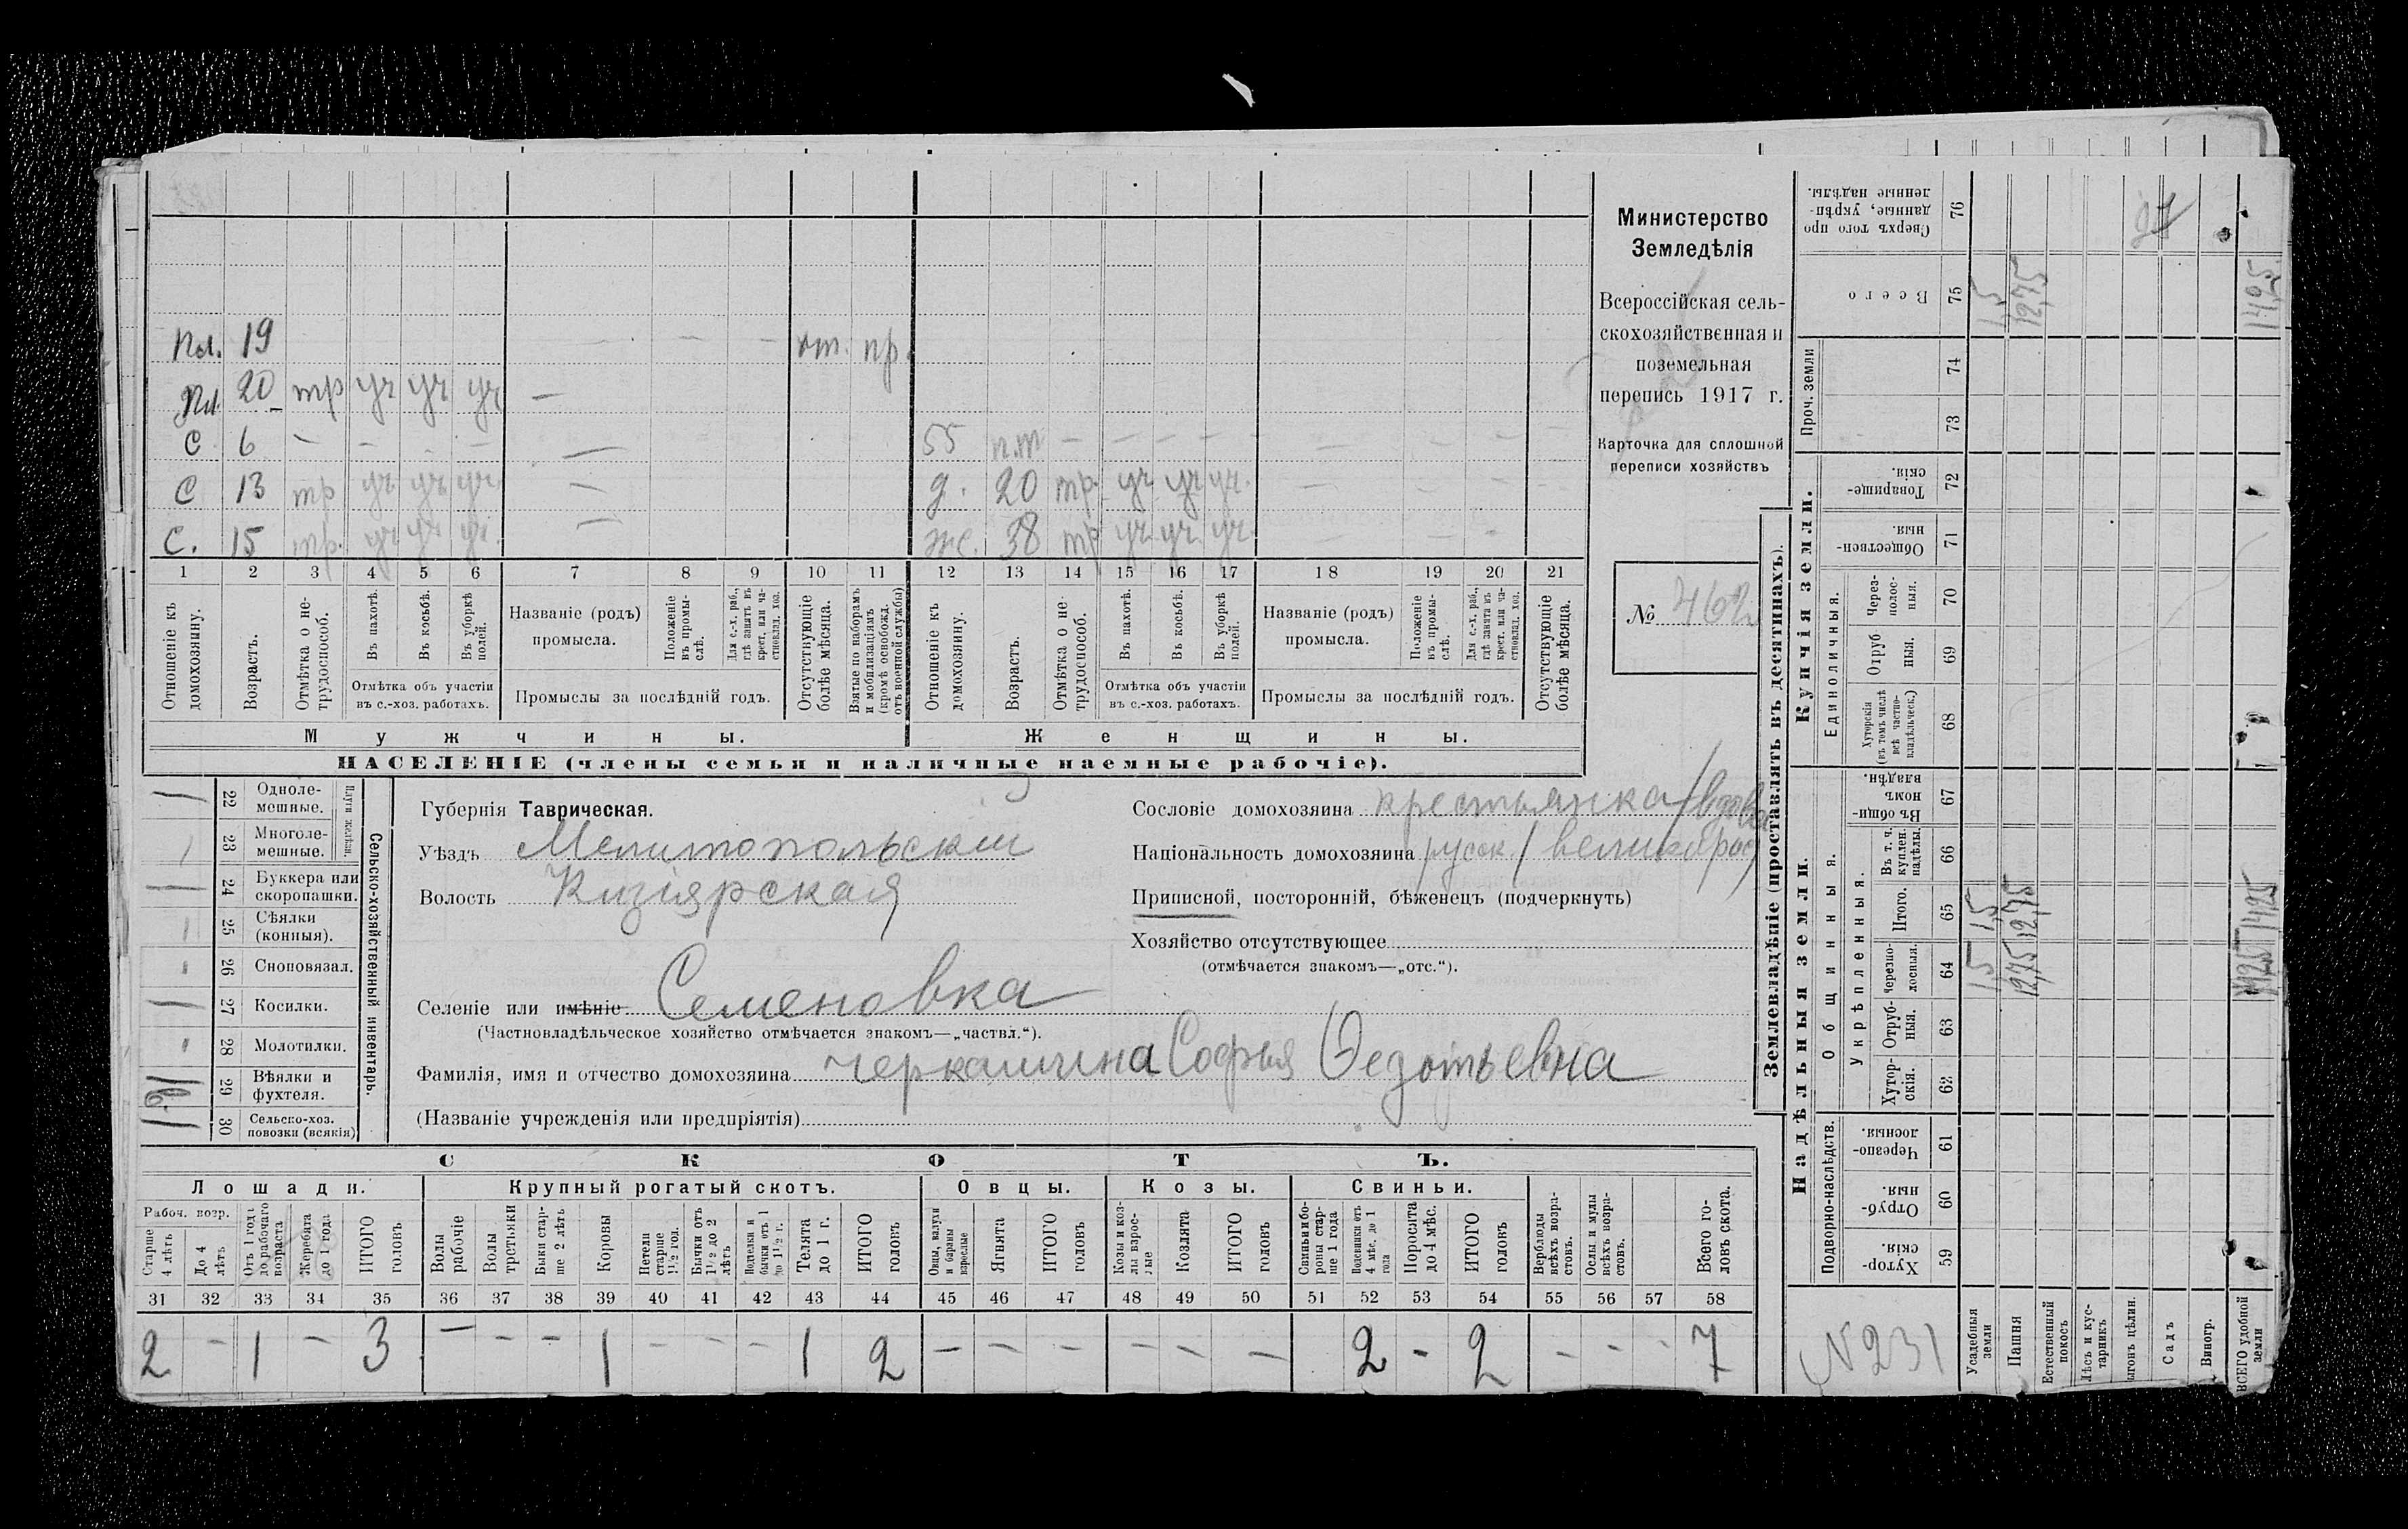 Пл. 19 — — — от. пр.
Пл. 20 тр уч уч уч —
С 6 — — — — 55 п.т — — — — — — —
С 13 тр уч уч уч — д. 20 тр. уч уч уч. — — —
С. 15 тр. уч уч уч. — же. 38 тр уч. уч. уч. — — -
1 2 3 4 5 6 7 8 9 10 11 12 13 14 15 16 17 18 19 20 21
Отношеніе къ домохозяину.
Возрастъ.
Отмѣтка о не-трудоспособ.
Въ пахотѣ.
Въ косьбѣ.
Въ уборкѣ полей.
Отмѣтка объ участіи
въ с.-хоз. работахъ.
Названіе (родъ)
промысла.
Положеніе въ промы-слѣ.
Для с.-х. раб., гдѣ занятъ въ крест. или ча-стновлад. хоз.
Промыслы за послѣдній годъ.
Отсутствующіе болѣе мѣсяца.
Взятые по наборамъ и мобилизаціямъ (кромѣ освобожд. отъ военной службы)
Отношеніе къ домохозяину.
Возрастъ.
Отмѣтка о не-трудоспособ.
Въ пахотѣ.
Въ косьбѣ.
Въ уборкѣ полей.
Отмѣтка объ участіи
въ с.-хоз. работахъ.
Названіе (родъ)
промысла.
Положеніе въ промы-слѣ.
Для с.-х. раб., гдѣ занята въ крест. или ча-стновлад. хоз.
Промыслы за послѣдній годъ.
Отсутствующіе болѣе мѣсяца.
Мужчины.
Женщины.
НАСЕЛЕНІЕ (члены семьи и наличные наемные рабочіе).
Министерство
Земледѣлія
Всероссійская сель-
скохозяйственная и
поземельная
перепись 1917 г.
Карточка для сплошной
переписи хозяйствъ
№ 462
Сельско-хозяйственный инвентарь.
Плуги желѣзн.
22 Одноле-мешные.
23 Многоле-мешные.
24 Буккера или скоропашки.
25 Сѣялки (конныя).
26 Сноповязал.
27 Косилки.
28 Молотилки.
29 Вѣялки и фухтеля.
30 Сельско-хоз. повозки (всякія)
Губернія Таврическая.
Уѣздъ Мелитопольскій
Волость Кизіярская
Селеніе или имѣніе Семеновка
(Частновладѣльческое хозяйство отмѣчается знакомъ—„частвл.“).
Фамилія, имя и отчество домохозяина Черкашина Софья Федотьевна
(Названіе учрежденія или предпріятія)
Сословіе домохозяина крестьянка/вдова
Національность домохозяина русск / великорос/
Приписной, посторонній, бѣженецъ (подчеркнуть)
Хозяйство отсутствующее
(отмѣчается знакомъ—„отс.“).
СКОТЪ.
Лошади. Крупный рогатый скотъ. Овцы. Козы. Свиньи.
Рабоч. возр.
Старше 4 лѣтъ
До 4 лѣтъ
Отъ 1 года до рабочаго возраста
Жеребята до 1 года
ИТОГО головъ
Волы рабочіе
Волы третьяки
Быки стар-ше 2 лѣтъ
Коровы
Нетели старше 1½ год.
Бычки отъ 1½ до 2 лѣтъ
Телята до 1 г.
ИТОГО головъ
Овцы, валухи и бараны взрослые
Ягнята
ИТОГО головъ
Козы и коз-лы взрос-лые
Козлята
ИТОГО головъ
Свиньи и бо-ровы стар-ше 1 года
Подсвинки отъ 4 мѣс. до 1 года
Поросята до 4 мѣс.
ИТОГО головъ
Верблюды всѣхъ возра-стовъ.
Ослы и мулы всѣхъ возра-стовъ.
Всего го-ловъ скота.
31 32 33 34 35 36 37 38 39 40 41 42 43 44 45 46 47 48 49 50 51 52 53 54 55 56 57 58
2 - 1 - 3 - - - 1 - - - 1 2 - - - - - - 2 - 2 - - - 7
Землевладѣніе (проставлять въ десятинахъ).
Надѣльныя земли.
Купчія земли.
Проч. земли
Подворно-наслѣдств.
Общинныя.
Укрѣпленныя.
Единоличныя.
Хутор-скія. 59
Отруб-ныя. 60
Черезпо-лосныя. 61
Хутор-скія. 62
Отруб-ныя. 63
Черезпо-лосныя. 64 1,5 12,75
Итого. 65 1,5 12,75 14,25
Въ т. ч. куплен. надѣлы. 66
Въ общин-номъ владѣн. 67
Хуторскія (въ томъ числѣ всѣ частно-владѣльческ.) 68
Отруб ныя. 69
Через-полос-ныя. 70
Обществен-ныя. 71
Товарище-скія. 72
73 74
Всего 75 1,5 12,75 14,25
Сверхъ того про данные, укрѣп-ленные надѣлы. 76
Усадебныя земли
Пашня
Естественный покосъ
Лѣсъ и кус-тарникъ
Садъ
Виногр.
ВСЕГО удобной земли
N 231